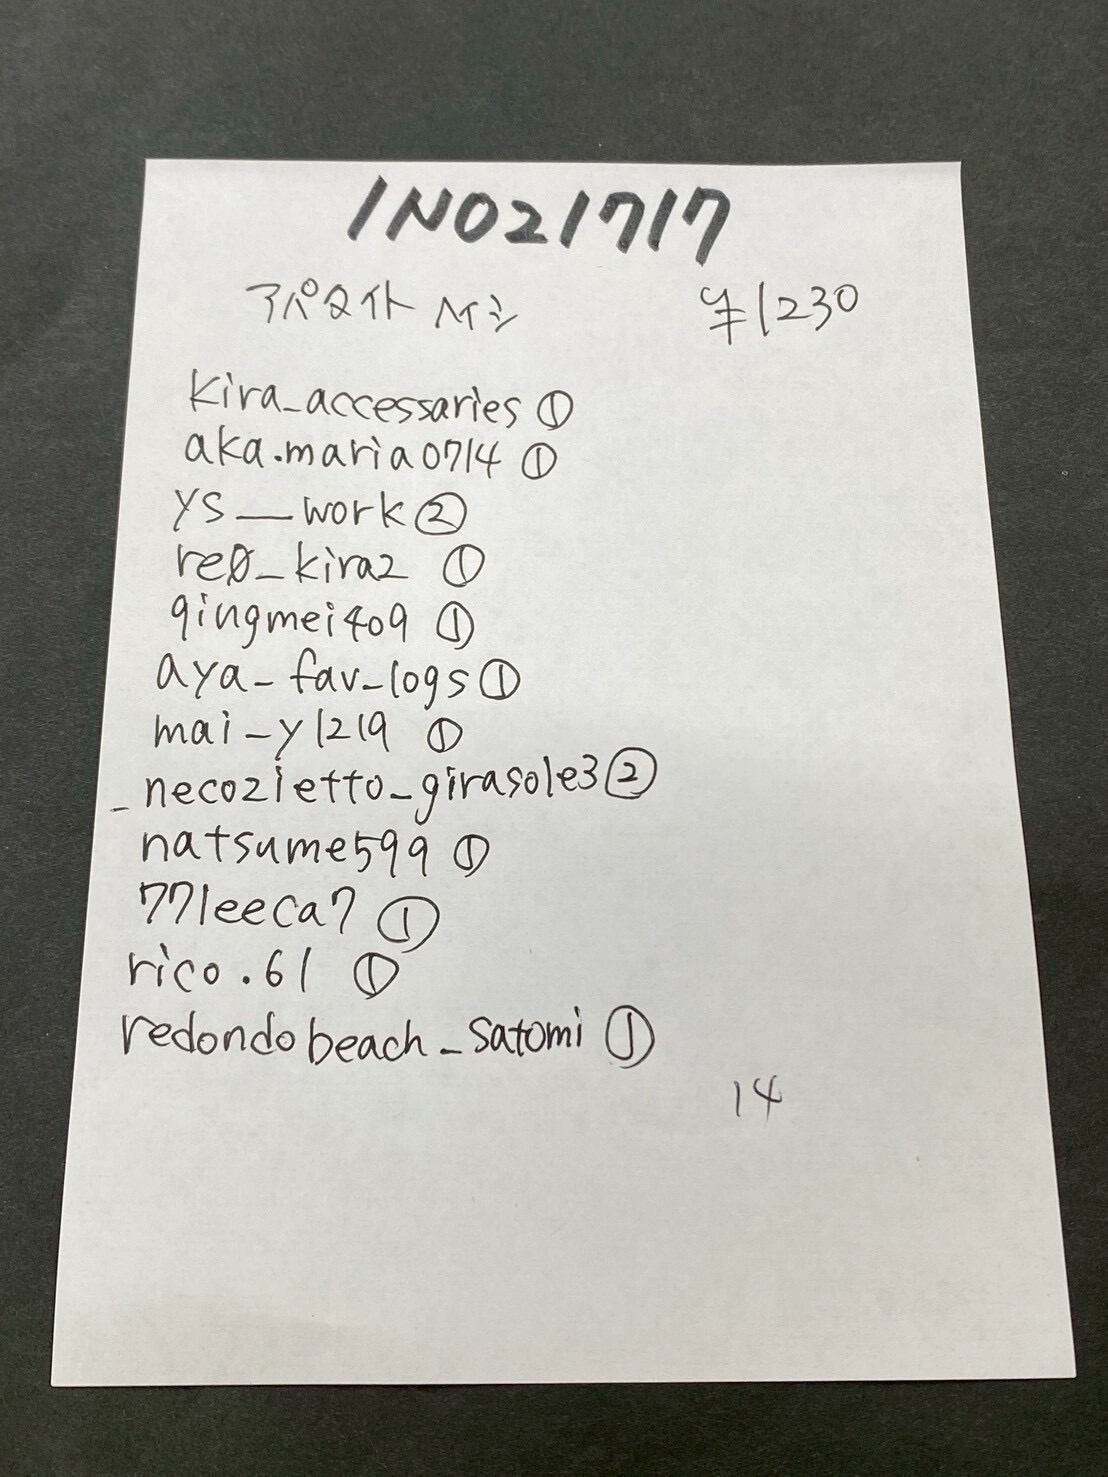 INO21717
アパタイト ㎫ ¥1230
kira_accessaries ①
aka.maria0714 ①
ys__work ②
re0_kira2 ①
qingmei409 ①
aya_fav_logs ①
mai_y1219 ①
_necozietto_girasole3 ②
natsume599 ①
77leeca7 ①
rico.61 ①
redondobeach_satomi ①
14